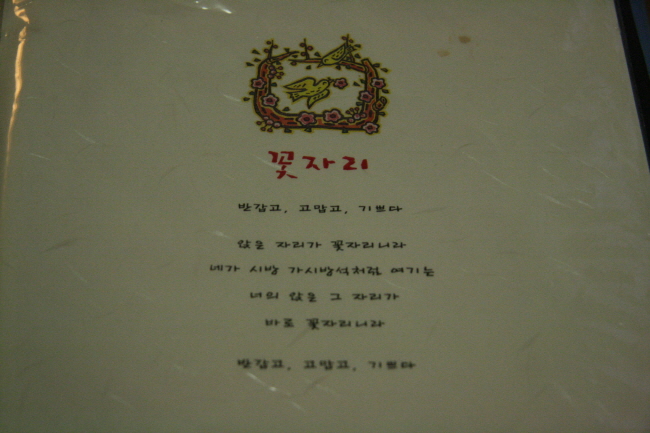 꽃자리
반갑고, 고맙고, 기쁘다
앉은 자리가 꽃자리니라
네가 시방 가시방석처럼 여기는
너의 앉은 그 자리가
바로 꽃자리니라
반갑고, 고맙고, 기쁘다